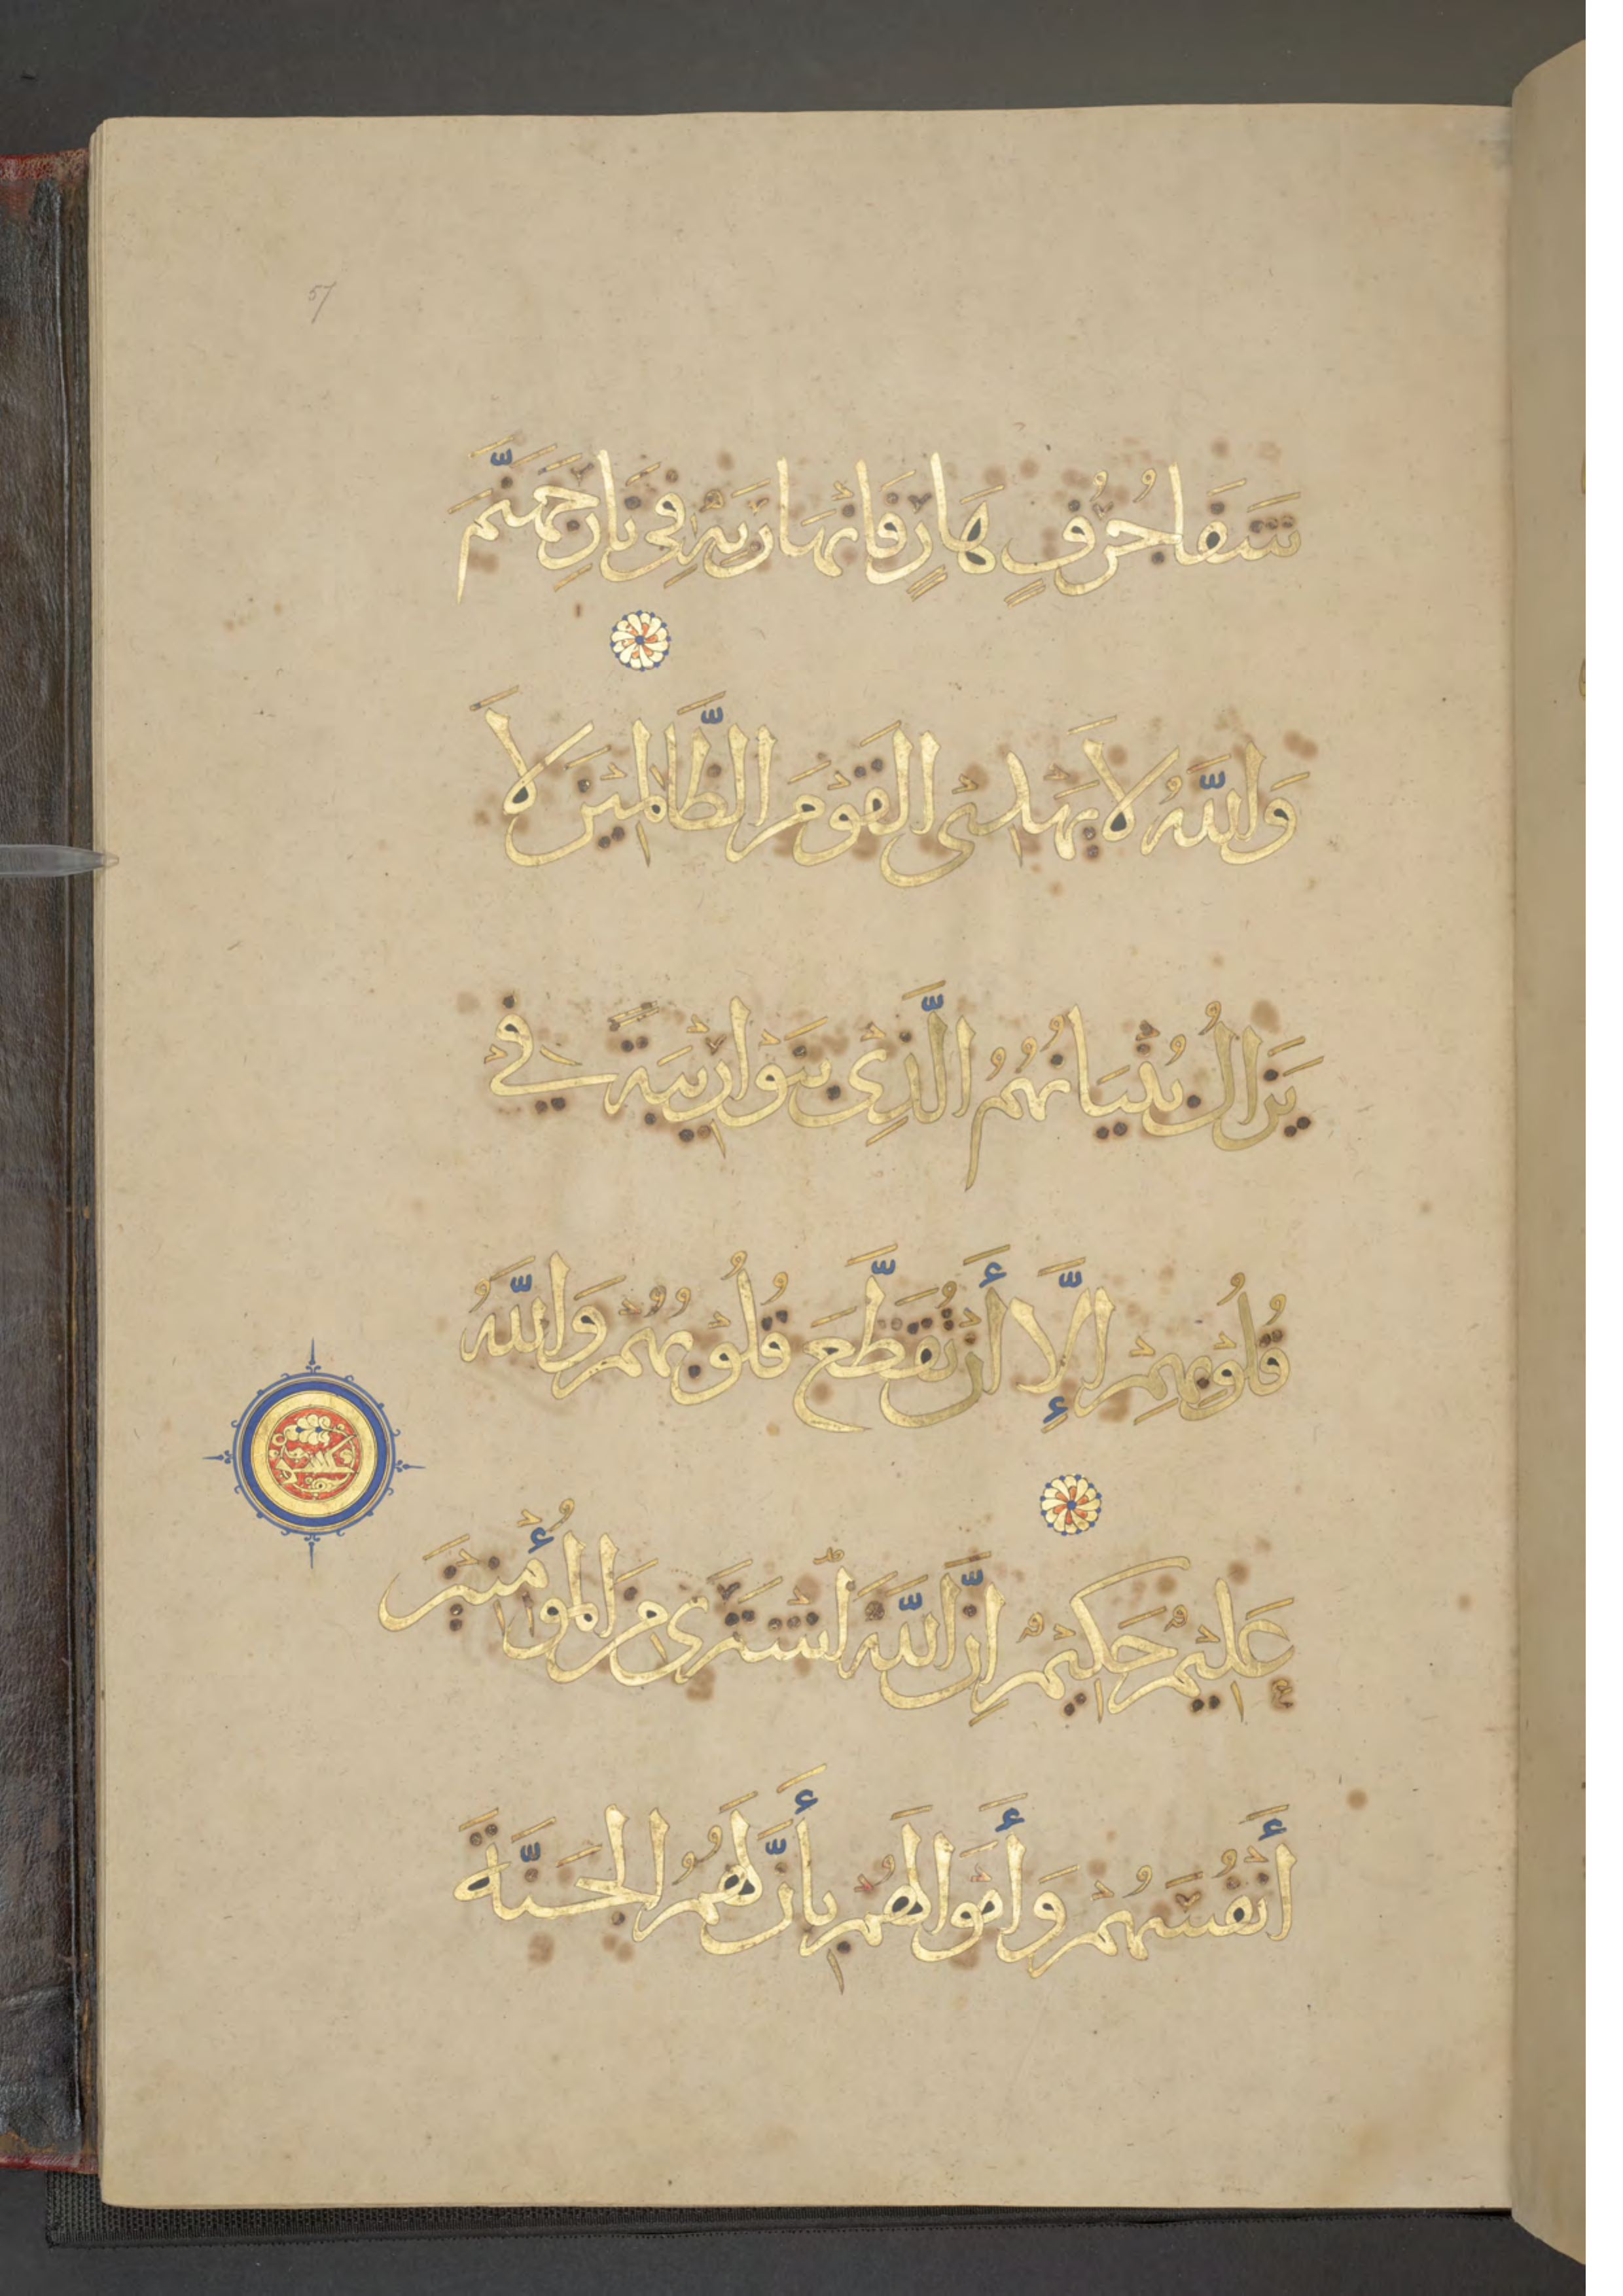 57
شَفَا جُرُفٍ هَارٍ فَانْهَارَ بِهِ فِي نَارِ جَهَنَّمَ
وَاللَّهُ لَا يَهْدِى الْقَوْمَ الظَّالِمِينَ لَا
يَزَالُ بُنْيَانُهُمُ الَّذِى بَنَوْا رِيْبَةً فِي
قُلُوْبِهِمْ إِلَّا أَنْ تَقَطَّعَ قُلُوْبُهُمْ وَاللَّهُ
عَلِيْمٌ حَكِيْمٌ اِنَّ اللَّهَ اشْتَرَى مِنَ الْمُؤْمِنِيْنَ
أَنْفُسَهُمْ وَأَمْوَالَهُمْ بِأَنَّ لَهُمُ الْجَنَّةَ